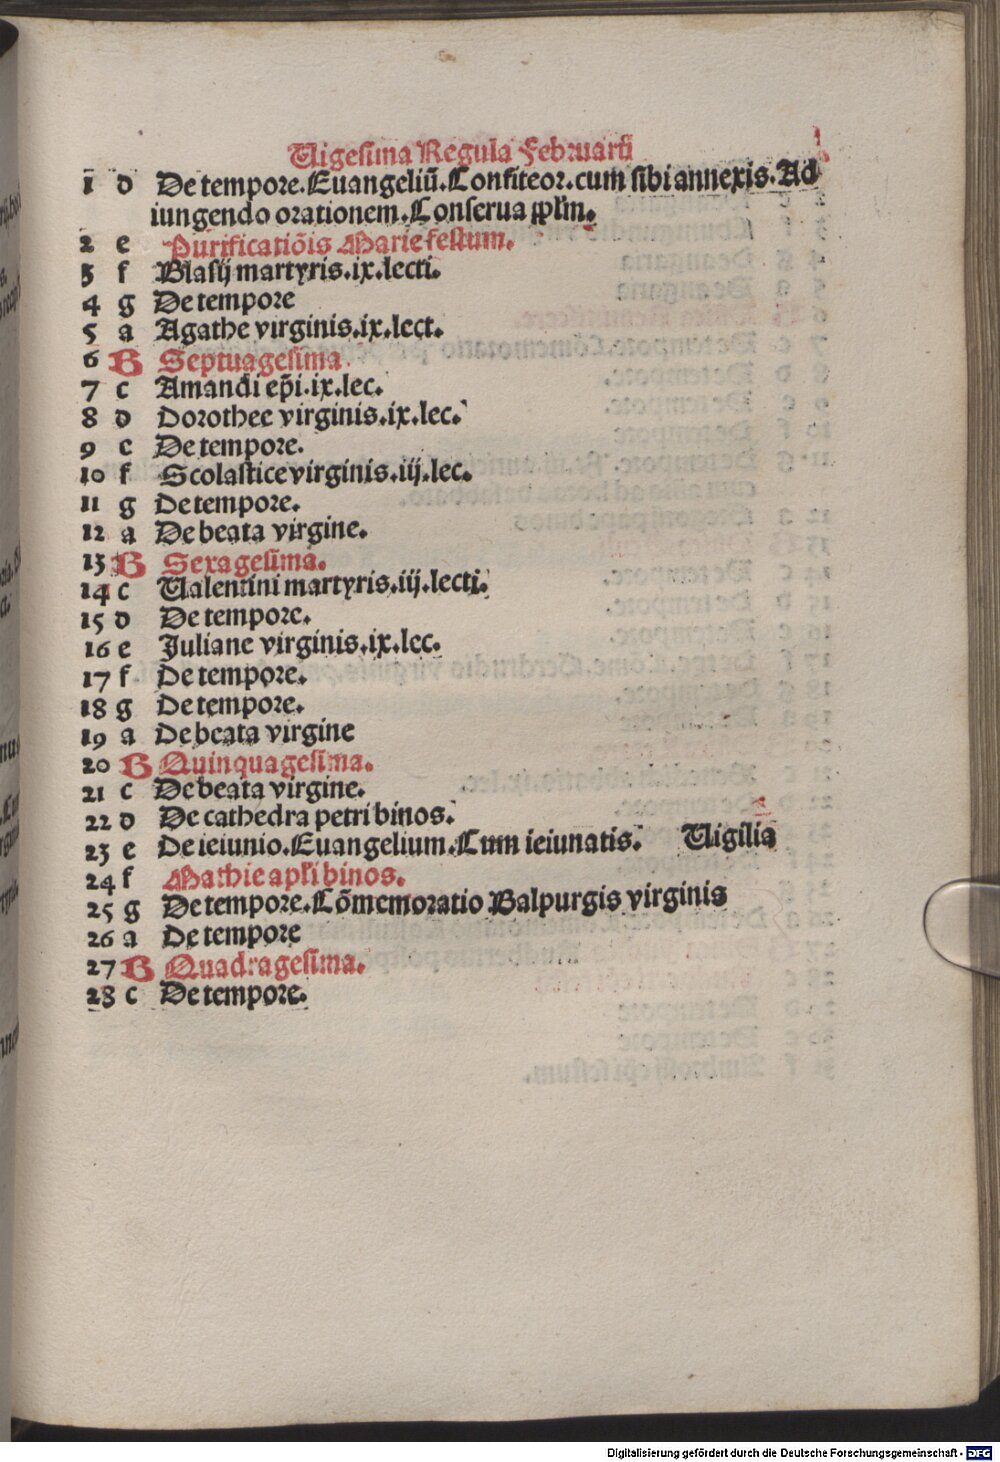 Uigesima Regula Februarii
1 d De tempore. Euangeliū. Confiteor. cum sibi annexis. Ad
iungendo orationem. Conserua pplm̄.
2 e Purificatiōis Marie festum.
3 f Blasij martyris. ix. lecti.
4 g De tempore
5 a Agathe virginis. ix. lect.
6 B Septuagesima
7 c Amandi ep̄i. ix. lec.
8 d Dorothee virginis. ix. lec.
9 e De tempore.
10 f Scolastice virginis. iij. lec.
11 g De tempore.
12 a De beata virgine.
13 B Sexagesima.
14 c Ualentini martyris. iij. lecti.
15 d De tempore.
16 e Juliane virginis. ix. lec.
17 f De tempore.
18 g De tempore.
19 a De beata virgine
20 B Quinquagesima.
21 c De beata virgine.
22 d De cathedra petri binos.
23 e De ieiunio. Euangelium. Cum ieiunatis. Uigilia
24 f Mathie apl̄i binos.
25 g De tempore. Cōmemoratio Balpurgis virginis
26 a De tempore
27 B Quadragesima.
28 c De tempore.
Digitalisierung gefördert durch die Deutsche Forschungsgemeinschaft - DFG